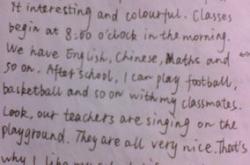 It interesting and colourful. Classes
begin at 8:00 o'clock in the morning.
We have English, Chinese, Maths and
so on. After school, I can play football,
basketball and so on with my classmates.
Look, our teachers are singing on the
playground. They are all very nice. That's
why I like my